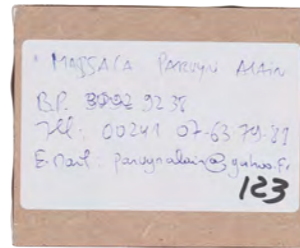 MASSALA PARVYN ALAIN
B.P. 9238
Tél: 00241 07-63-79-81
E-Mail: parvynalain@yahoo.fr
123